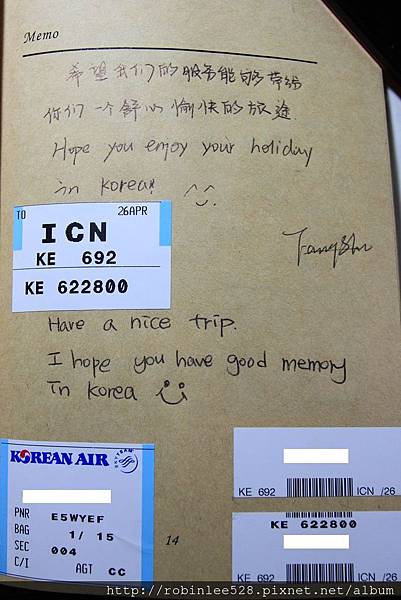 Memo
希望我们的服务能够带给
你们一个舒心愉快的旅途.
Hope you enjoy your holiday
in Korea!
TO 26APR
ICN
KE 692
KE 622800
Have a nice trip.
I hope you have good memory
in Korea
KOREAN AIR
SKYTEAM
PNR E5WYEF
BAG 1/ 15
SEC 004
C/I AGT CC
14
KE 692 ICN /26
KE 622800
KE 692 ICN /26
http://robinlee528.pixnet.net/album